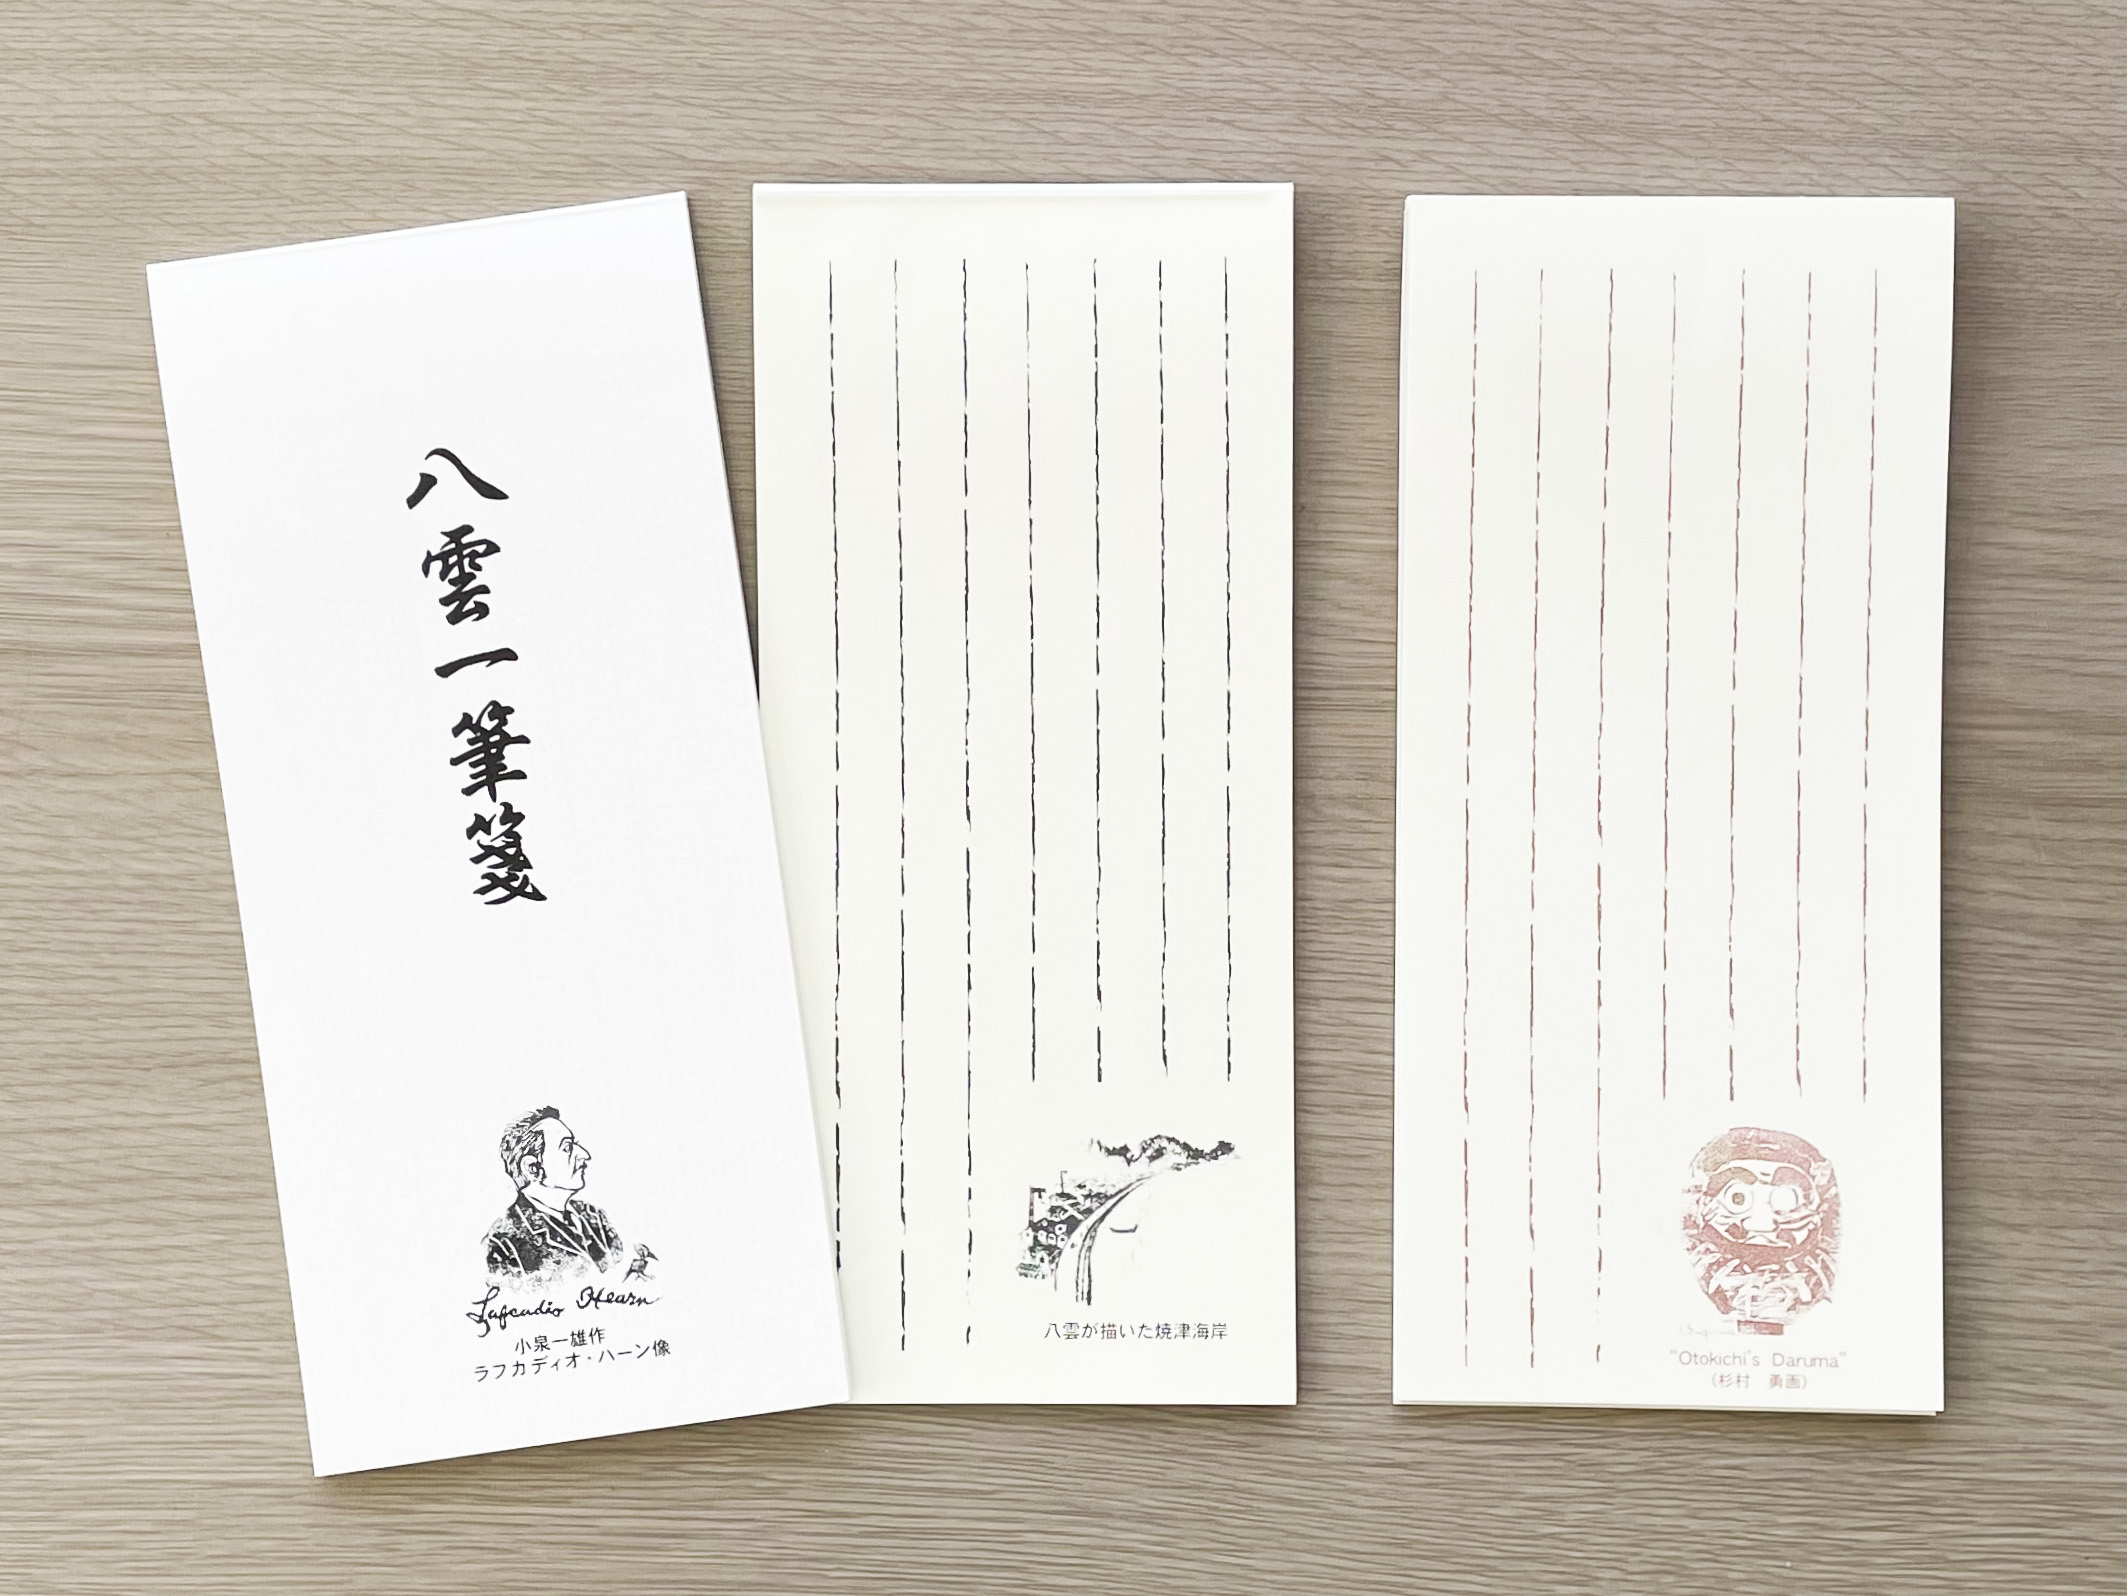 八雲一筆箋
Lafcadio Hearn
小泉一雄作
ラフカディオ・ハーン像
八雲が描いた焼津海岸
"Otokichi's Daruma"
(杉村 勇画)